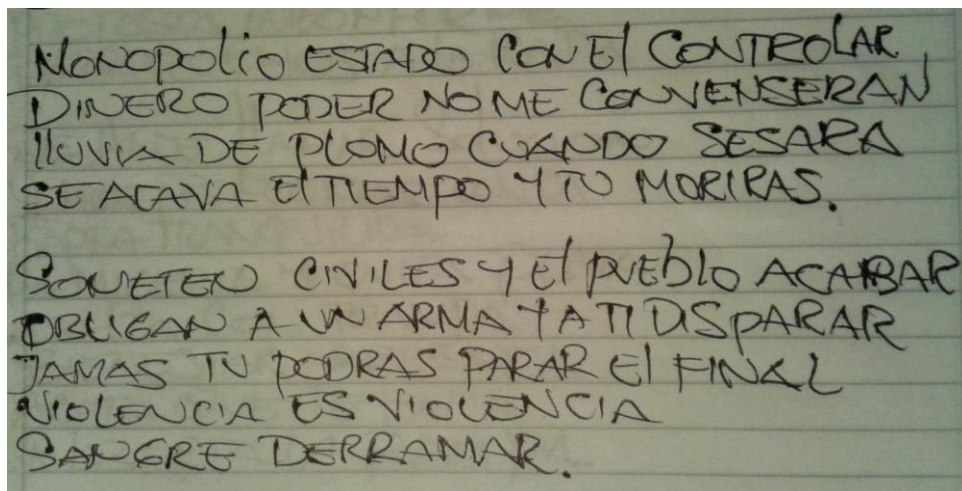 MONOPOLIO ESTADO CON El CONTROLAR
DINERO PODER NO ME CONVENSERAN
llUVIA DE PLOMO CUANDO SESARA
SE ACAVA El TIEMPO Y TU MORIRAS.
SOMETEN CIVILES Y El PUEblO ACABAR
OBLIGAN A UN ARMA Y A TI DISPARAR
JAMAS TU PODRAS PARAR El FINAL
VIOLENCIA ES VIOLENCIA
SANGRE DERRAMAR.